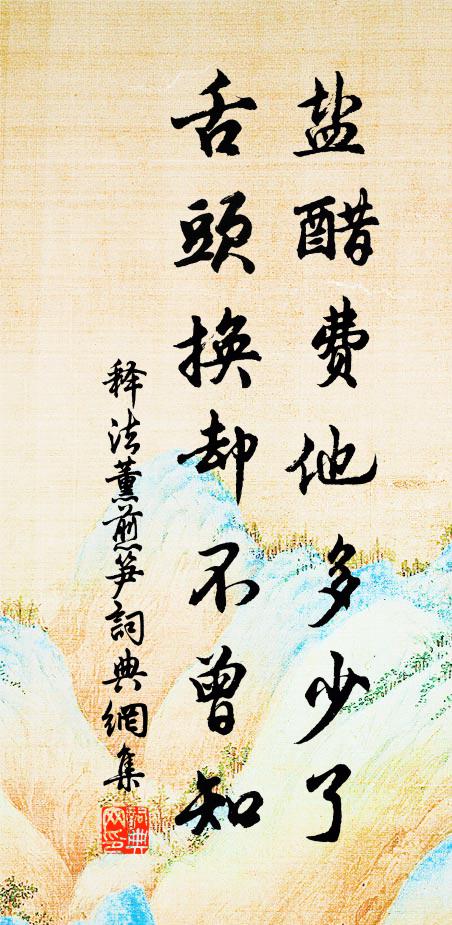 盐醋费他多少了
舌頭换却不曾知
释法薰煎笋詞典網集
詞典
网印